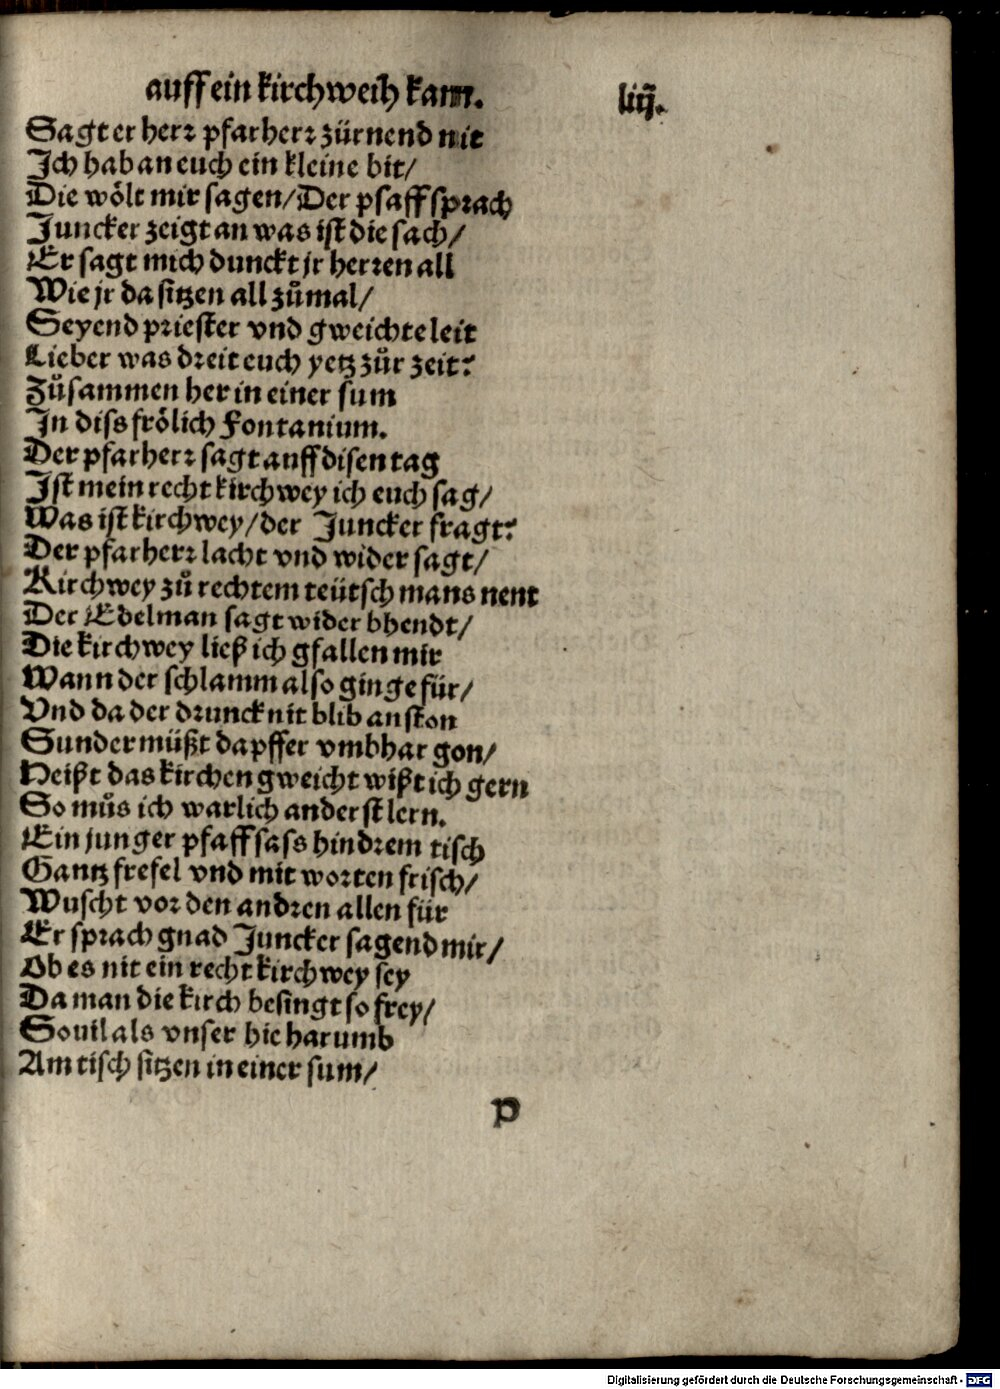 auff ein kirchweih kam. liij.
Sagt er herr pfarherr zürnend nit
Ich hab an euch ein kleine bit/
Die wölt mir sagen/Der pfaff sprach
Juncker zeigt an was ist die sach/
Er sagt mich dunckt jr herren all
Wie jr da sitzen all zůmal/
Seyend priester vnd gweichte leit
Lieber was dreit euch yetz zůr zeit?
Zůsammen her in einer sum
In diss frölich Fontanium.
Der pfarherr sagt auff disen tag
Ist mein recht kirchwey ich euch sag/
Was ist kirchwey/der Juncker fragt?
Der pfarherr lacht vnd wider sagt/
Kirchwey zů rechtem teütsch mans nent
Der Edelman sagt wider bhendt/
Die kirchwey ließ ich gfallen mir
Wann der schlamm also ginge für/
Vnd da der drunck nit blib anston
Sunder müßt dapffer vmbhar gon/
Heißt das kirchen gweicht wißt ich gern
So můs ich warlich anderst lern.
Ein junger pfaff sass hindrem tisch
Gantz frefel vnd mit worten frisch/
Wuscht vor den andren allen für
Er sprach gnad Juncker sagend mir/
Ob es nit ein recht kirchwey sey
Da man die kirch besingt so frey/
Souil als vnser hie harumb
Am tisch sitzen in einer sum/
p
Digitalisierung gefördert durch die Deutsche Forschungsgemeinschaft - DFG